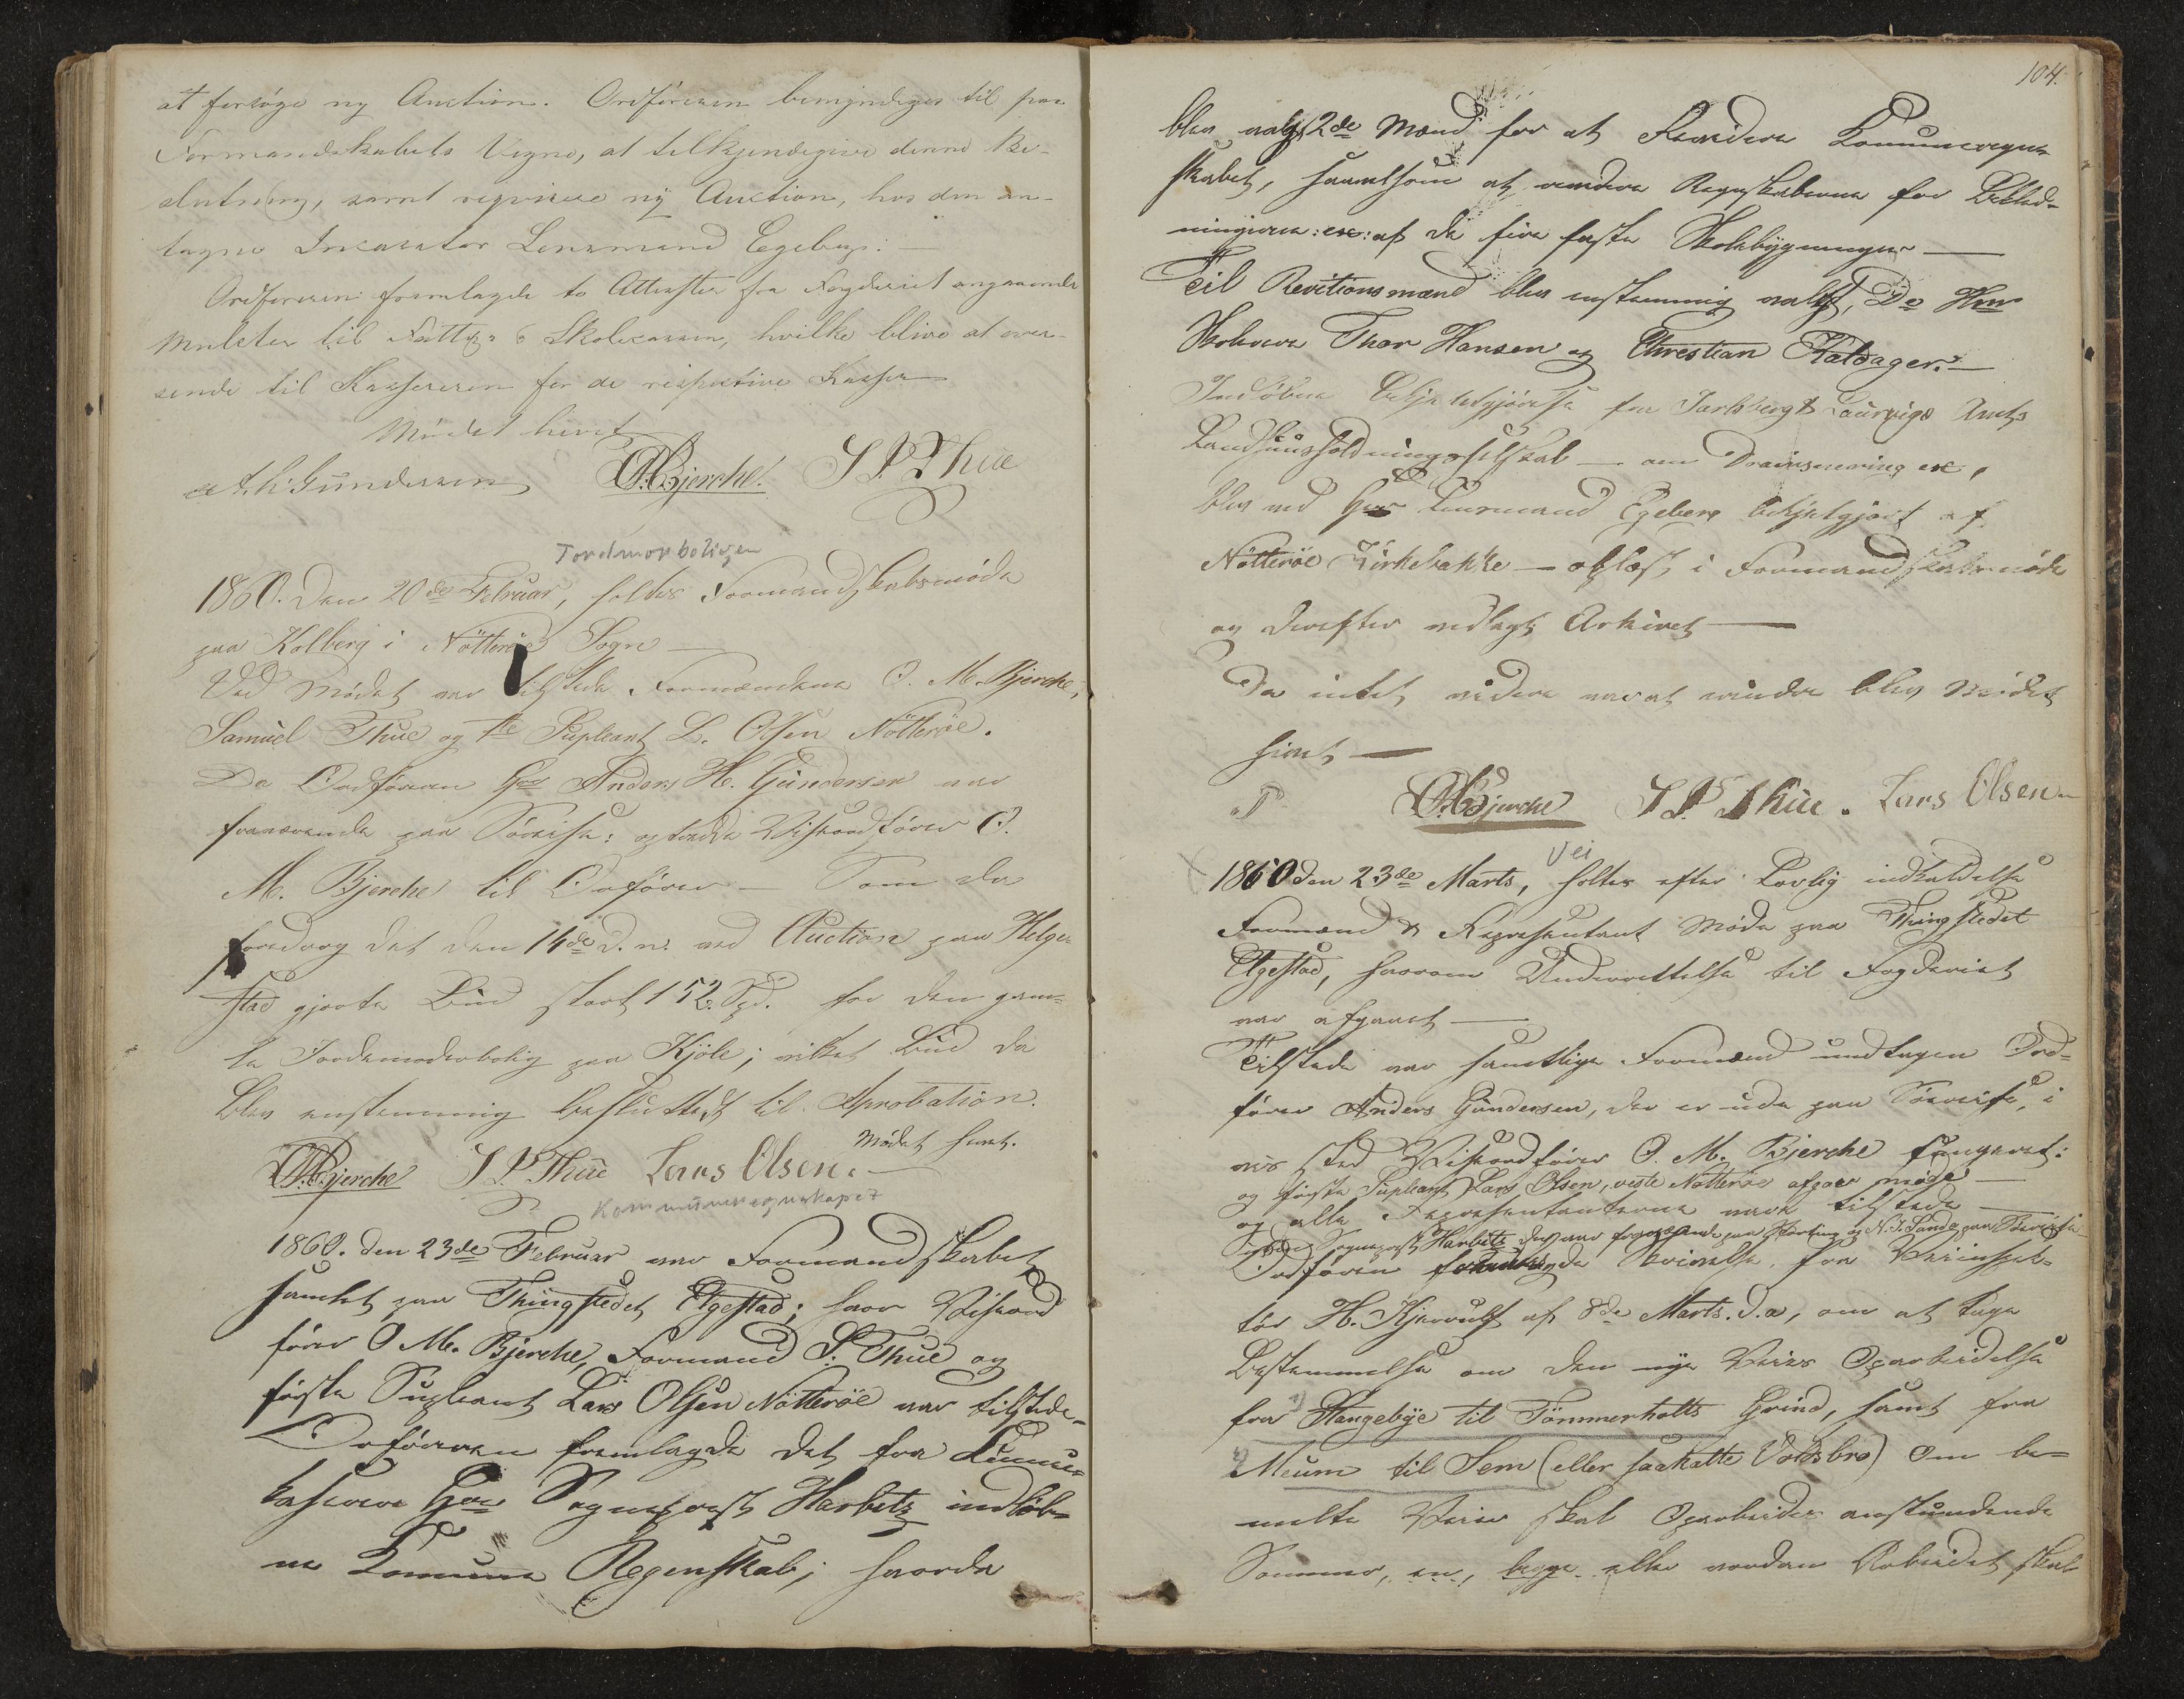 at forsøge ny Auction. Ordføreren bemyndiges til paa
Formandskabets Vegne, at tilkjendegive denne Be-
slutning, samt reqvirere ny Auction, hos den an-
tagne Incasator Lensmand Egeberg.
Ordføreren fremlagde to Attester fra Fogderiet angaaende
Mulkter til Fattig- & Skolecassen, hvilke blive at over-
sende til Kassereren for de respective Kasser
Mødet hævet
A. H. Gundersen O. M. Bjerche. S. P. Thue
Jordmorboligen
1860. Den 20de Februar, holdes Formandskabsmøde
paa Kolberg i Nötteröe Sogn —
Ved Mødet var tilstede Formændene O. M. Bjerche,
Samuel Thue og 1te Supleant L. Olsen Nötteröe.
Da Ordføreren Hr Anders H. Gundersen var
fraværende paa Søreise: optraadte Viseordfører O.
M. Bjerche til Ordfører — Som da
foredrog det den 14de d. m. ved Auction paa Helge-
stad gjorte Bud stort 152 Spd. for den gam-
le Jordemoderbolig paa Kjöle; vilket Bud da
blev enstemmig besluttedt til Aprobation.
Mødet hævet.
O. M. Bjerche S. P. Thue Lars Olsen.
Kommuneregnskapet
1860. den 23de Februar var Formandskabet
samlet paa Thingstedet Elgestad; hvor Viseord-
fører O M. Bjerche, Formand S. Thue og
første Supleant Lars Olsen Nötteröe var tilstede-
Ordføreren fremlagde det fra Commune-
kasserer Herr Sogneprest Harbitz indløb-
ne Commune Regenskab; hvorda
104.
blev valgt 2de Mænd for at Revidere Communeregn-
skabet, saavelsom at revidere Regnskaberne for Beklæd-
ningerne :ex: af de fire faste Skolebygninger —
Til Revitionsmænd blev enstemmig valgt, De Hrr
Skolelærer Thor Hansen og Christian Haldager. —
Indløbne Bekjendtgjørelse fra Jarlsberg & Laurvigs Amts
Landhuusholdningsselskab — om Drainsnering etc,
blev ved Herr Lensmand Egeberg bekjentgjort af
Nötteröe Kirkebakke — oplæst, i Formandskabsmøde
og derefter vedlagt Arkivet —
Da intet videre var at vinde blev Mødet
hævet —
O. M. Bjerche S. P. Thue. Lars Olsen
Vei
1860 den 23de Marts, holtes efter Lovlig indkaldelse
Formænd & Representant Møde paa Thingstedet
Elgestad, hvorom Underrettelse til Fogderiet
var afgaaet —
Tilstede var samtlige Formænd undtagen Ord-
fører Anders Gundersen, der er ude paa Søereise, i
vis sted Viseordfører O. M. Bjerche fungeret:
og første Supleant Lars Olsen, veste Nötteröe afgaar møde —
og alle Representanterne vare tilstede —
Sogneprest Harbitz der var fraværende paa Storting og N. J. Sande paa Søereise
Ordføreren fremlagde Skrivelse fra Veiinspek-
tör H. Kjerrulf af 8de Marts. d. a, om at tage
Bestemmelse om den nye Veies Oparbeidelse
fra Hangebye til Tömmerholts Grind, samt fra
Meum til Sem (eller saakalte Voldsbro) Om be-
melte Veier skal Oparbeides anstundende
Sommer, en, begge eller vordan Arbeidet skal